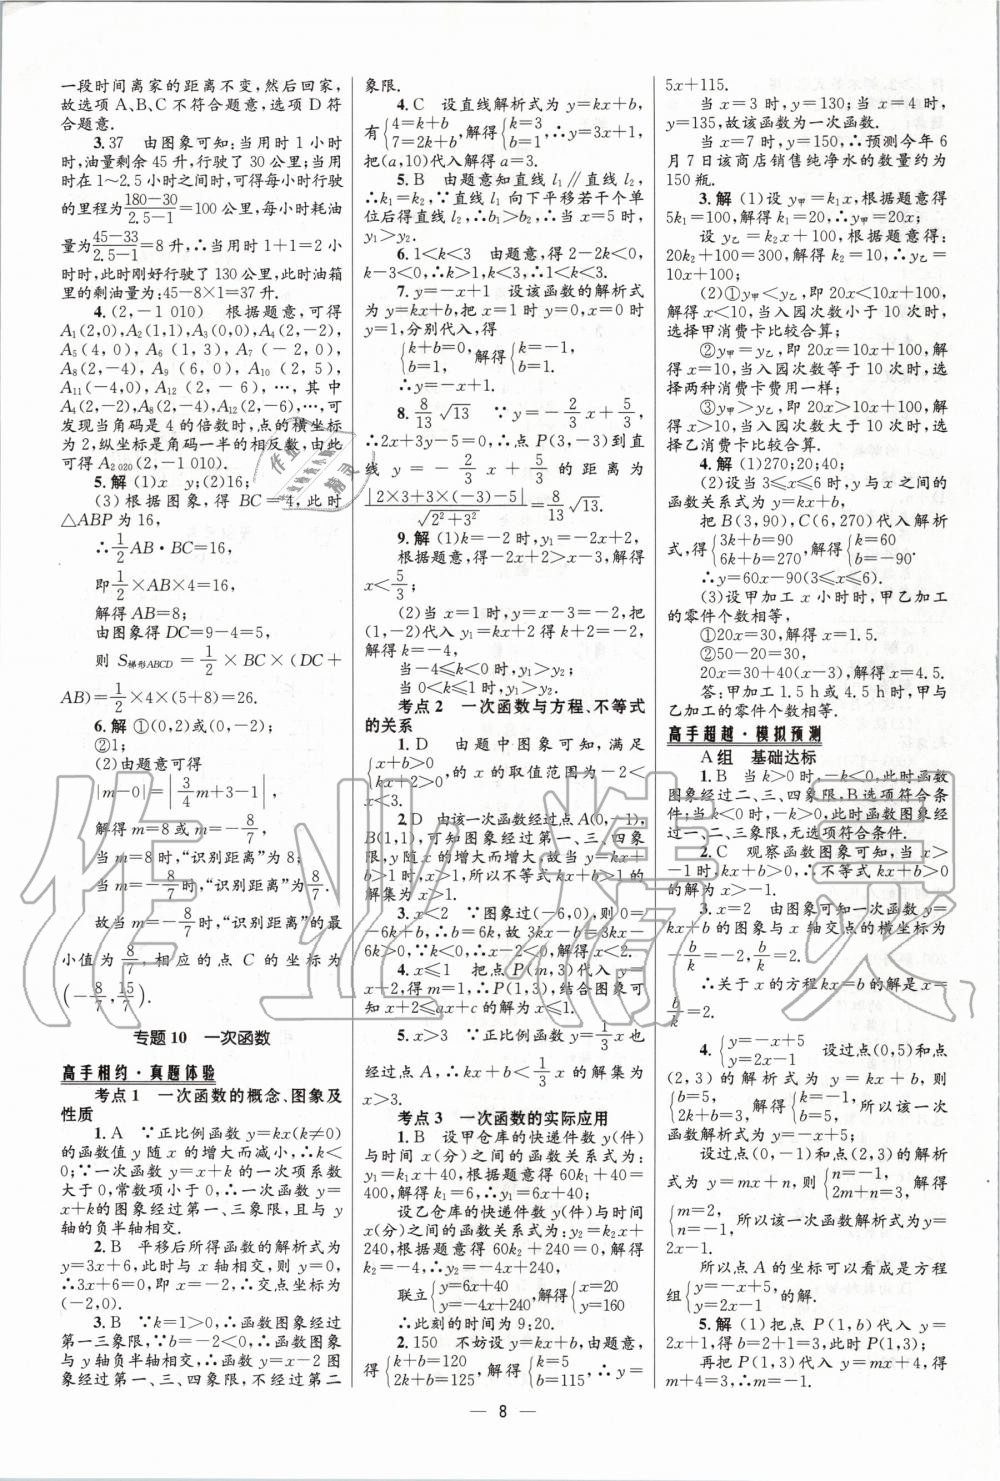 一段时间离家的距离不变,然后回家,
故选项 A、B、C 不符合题意,选项 D 符
合题意.
3.37 由图象可知:当用时 1 小
时时,油量剩余 45 升,行驶了 30 公里;当用
时在 1~2.5 小时之间时,可得每小时行驶
的里程为(180-30)/(2.5-1)=100 公里,每小时耗油
量为(45-33)/(2.5-1)=8 升,∴当用时 1+1=2 小
时时,此时刚好行驶了 130 公里,此时油箱
里的剩油量为:45-8×1=37 升.
4.(2,-1 010) 根据题意,可得
A₁(2,0),A₂(1,1),A₃(0,0),A₄(2,-2),
A₅(4,0),A₆(1,3),A₇(-2,0),
A₈(2,-4),A₉(6,0),A₁₀(2,5),
A₁₁(-4,0),A₁₂(2,-6),…,其中
A₄(2,-2),A₈(2,-4),A₁₂(2,-6),…,可
发现当角码是 4 的倍数时,点的横坐标
为 2,纵坐标是角码一半的相反数,由此
可得 A₂₀₂₀(2,-1 010).
5.解 (1)x y;(2)16;
(3)根据图象,得 BC=4,此时
△ABP 为 16,
∴1/2 AB·BC=16,
即1/2×AB×4=16,
解得 AB=8;
由图象得 DC=9-4=5,
则 S梯形ABCD=1/2×BC×(DC+
AB)=1/2×4×(5+8)=26.
6.解 ①(0,2)或(0,-2);
②1;
(2)由题意可得
|m-0|=|3/4 m+3-1|,
解得 m=8 或 m=-8/7,
当 m=8 时,“识别距离”为 8;
当 m=-8/7时,“识别距离”为8/7.
故当 m=-8/7时,“识别距离”的最
小值为8/7,相应的点 C 的坐标为
(-8/7,15/7).
专题 10 一次函数
高手相约·真题体验
考点 1 一次函数的概念、图象及
性质
1.A ∵正比例函数 y=kx(k≠0)
的函数值 y 随 x 的增大而减小,∴k<
0;∵一次函数 y=x+k 的一次项系数
大于 0,常数项小于 0,∴一次函数 y=
x+k的图象经过第一、三象限,且与 y
轴的负半轴相交.
2.B 平移后所得函数的解析式为
y=3x+6,此时与 x 轴相交,则 y=0,
∴3x+6=0,即 x=-2,∴交点坐标为
(-2,0).
3.B ∵k=1>0,∴函数图象经过
第一三象限,∵b=-2<0,∴函数图象
与 y 轴负半轴相交,∴函数 y=x-2 图
象经过第一、三、四象限,不经过第二
象限.
4.C 设直线解析式为 y=kx+b,
有{4=k+b 7=2k+b,解得{k=3 b=1,∴y=3x+1,
把(a,10)代入解得 a=3.
5.B 由题意知直线 l₁∥直线 l₂,
∴k₁=k₂,∵直线 l₁ 向下平移若干个单
位后得直线 l₂,∴b₁>b₂,∴当 x=5 时,
y₁>y₂.
6.1<k<3 由题意,得 2-2k<0,
k-3<0,∴k>1,k<3,∴1<k<3.
7.y=-x+1 设该函数的解析式
为 y=kx+b,把 x=1 时 y=0,x=0 时
y=1,分别代入,得
{k+b=0, b=1,解得{k=-1, b=1.
∴y=-x+1.
8.8/13√13 ∵y=-2/3x+5/3,
∴2x+3y-5=0,∴点 P(3,-3)到直
线 y=-2/3x+5/3的距离为
|2×3+3×(-3)-5|/√(2²+3²)=8/13√13.
9.解 (1)k=-2 时,y₁=-2x+2,
根据题意,得-2x+2>x-3,解得
x<5/3;
(2)当 x=1 时,y=x-3=-2,把
(1,-2)代入 y₁=kx+2 得 k+2=-2,
解得 k=-4,
当-4≤k<0 时,y₁>y₂;
当 0<k≤1 时,y₁>y₂.
考点 2 一次函数与方程、不等式
的关系
1.D 由题中图象可知,满足
{x+b>0 kx+2>0,的 x 的取值范围为-2<
x<3.
2.D 由该一次函数经过点 A(0,-1),
B(1,1),可知图象经过第一、三、四象
限,y 随 x 的增大而增大,故当 y=kx+
b>1 时,x>1,所以不等式 kx+b>1 的
解集为 x>1.
3.x<2 ∵图象过(-6,0),则 0=
-6k+b,∴b=6k,故 3kx-b=3kx-
6k>0,∵k<0,∴x-2<0,解得 x<2.
4.x≤1 把点 P(m,3)代入 y=
x+2,得 m=1,∴P(1,3),结合图象可
知 x+2≤ax+c 的解为 x≤1.
5.x>3 ∵正比例函数 y=1/3x 也
经过点 A,∴kx+b<1/3x 的解集为
x>3.
考点 3 一次函数的实际应用
1.B 设甲仓库的快递件数 y(件)
与时间 x(分)之间的函数关系式为:
y₁=k₁x+40,根据题意得 60k₁+40=
400,解得 k₁=6,∴y₁=6x+40;
设乙仓库的快递件数 y(件)与时间
x(分)之间的函数关系式为:y₂=k₂x+
240,根据题意得 60k₂+240=0,解得
k₂=-4,∴y₂=-4x+240,
联立{y=6x+40 y=-4x+240,解得{x=20 y=160
∴此刻的时间为 9:20.
2.150 不妨设 y=kx+b,由题意,
得{k+b=120 2k+b=125,解得{k=5 b=115,∴y=
5x+115.
当 x=3 时,y=130;当 x=4 时,
y=135,故该函数为一次函数.
当 x=7 时,y=150,∴预测今年 6
月 7 日该商店销售纯净水的数量约为
150 瓶.
3.解 (1)设 y甲=k₁x,根据题意得
5k₁=100,解得 k₁=20,∴y甲=20x;
设 y乙=k₂x+100,根据题意得:
20k₂+100=300,解得 k₂=10,∴y乙=
10x+100;
(2)①y甲<y乙,即 20x<10x+100,
解得 x<10,当入园次数小于 10 次时,
选择甲消费卡比较合算;
②y甲=y乙,即 20x=10x+100,解
得 x=10,当入园次数等于 10 次时,选
择两种消费卡费用一样;
③y甲>y乙,即 20x>10x+100,解
得 x>10,当入园次数大于 10 次时,选
择乙消费卡比较合算.
4.解 (1)270;20;40;
(2)设当 3≤x≤6 时,y 与 x 之间的
函数关系式为 y=kx+b,
把 B(3,90),C(6,270)代入解析
式,得{3k+b=90 6k+b=270,解得{k=60 b=-90.
∴y=60x-90(3≤x≤6).
(3)设甲加工 x 小时时,甲乙加工
的零件个数相等,
①20x=30,解得 x=1.5.
②50-20=30,
20x=30+40(x-3),解得 x=4.5.
答:甲加工 1.5 h或 4.5 h 时,甲与
乙加工的零件个数相等.
高手超越·模拟预测
A 组 基础达标
1.B 当 k>0 时,-k<0,此时函数
图象经过一、三、四象限,B 选项符合条
件;当 k<0 时,-k>0,此时函数图象经
过一、二、三象限,无选项符合条件.
2.C 观察函数图象可知,当 x>
-1 时,kx+b>0,∴不等式 kx+b>0
的解集是 x>-1.
3.x=2 由图象可知一次函数 y=
kx+b 的图象与 x 轴交点的横坐标为
-b/k=-2,b/k=2.
∴关于 x 的方程kx=b 的解是 x=
b/k=2.
4.{y=-x+5 y=2x-1 设过点(0,5)和点
(2,3)的解析式为 y=kx+b,则
{b=5, 2k+b=3,解得{k=-1, b=5,所以该一次
函数解析式为 y=-x+5;
设过点(0,-1)和点(2,3)的解析
式为 y=mx+n,则{n=-1, 2m+n=3,解得
{m=2, n=-1.所以该一次函数解析式为 y=
2x-1.
所以点 A 的坐标可以看成是方程
组{y=-x+5, y=2x-1的解.
5.解 (1)把点 P(1,b)代入 y=
2x+1,得 b=2+1=3,此时 P(1,3);
再把 P(1,3)代入 y=mx+4,得
m+4=3,∴m=-1.
— 8 —
作业精灵
作业精灵